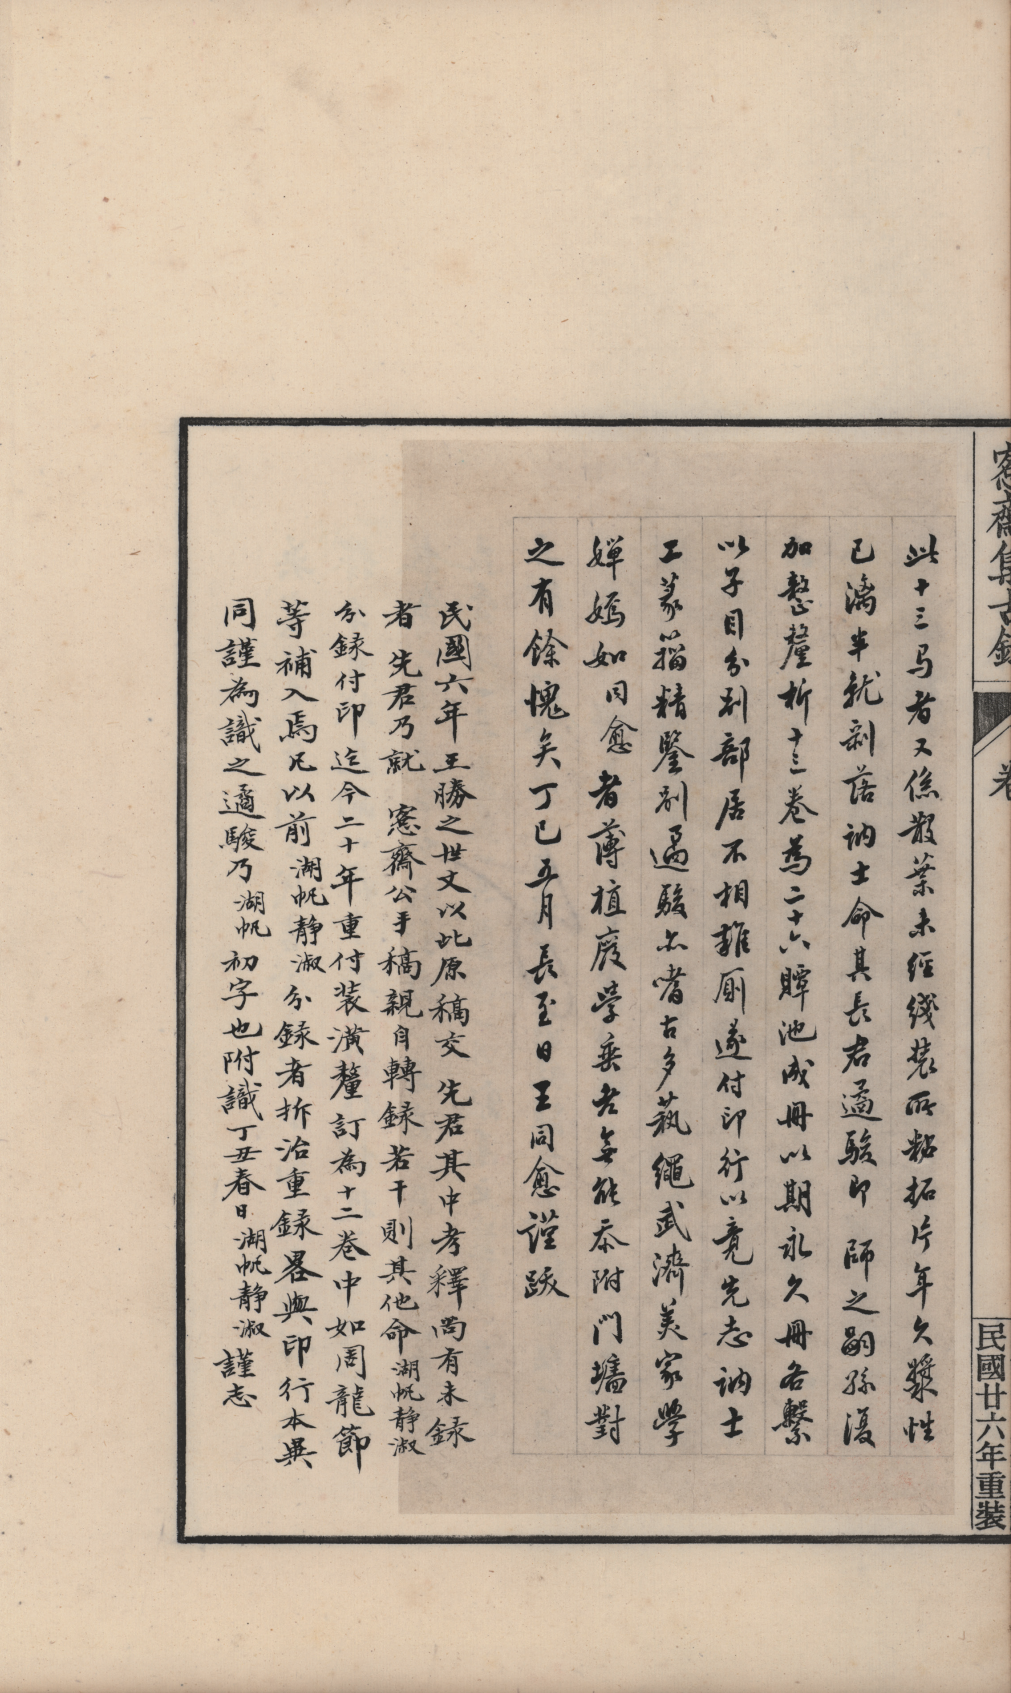 愙齋集古錄
卷
民國廿六年重裝
此十三马者又係散葉未經綫裝所粘拓片年久漿性
已漓半就剥落訥士命其長君遹駿即 師之嗣孫復
加整釐析十三卷為二十六贉池成冊以期永久冊各繫
以子目分别部居不相雜厠遂付印行以竟先志訥士
工篆籀精鑒别遹駿亦嗜古多藝繩武濟美家學
嬋嫣如同愈者薄植廢學垂老無能忝附門墻對
之有餘愧矣丁巳五月長至日王同愈謹跋
民國六年王勝之世丈以此原稿交 先君其中考釋尚有未録
者 先君乃就 愙齋公手稿親自轉録若干則其他命湖帆静淑
分録付印迄今二十年重付装潢釐訂為十二卷中如周龍節
等補入焉凡以前湖帆静淑分録者拆治重録畧與印行本異
同謹為識之遹駿乃湖帆初字也附識丁丑春日湖帆静淑謹志